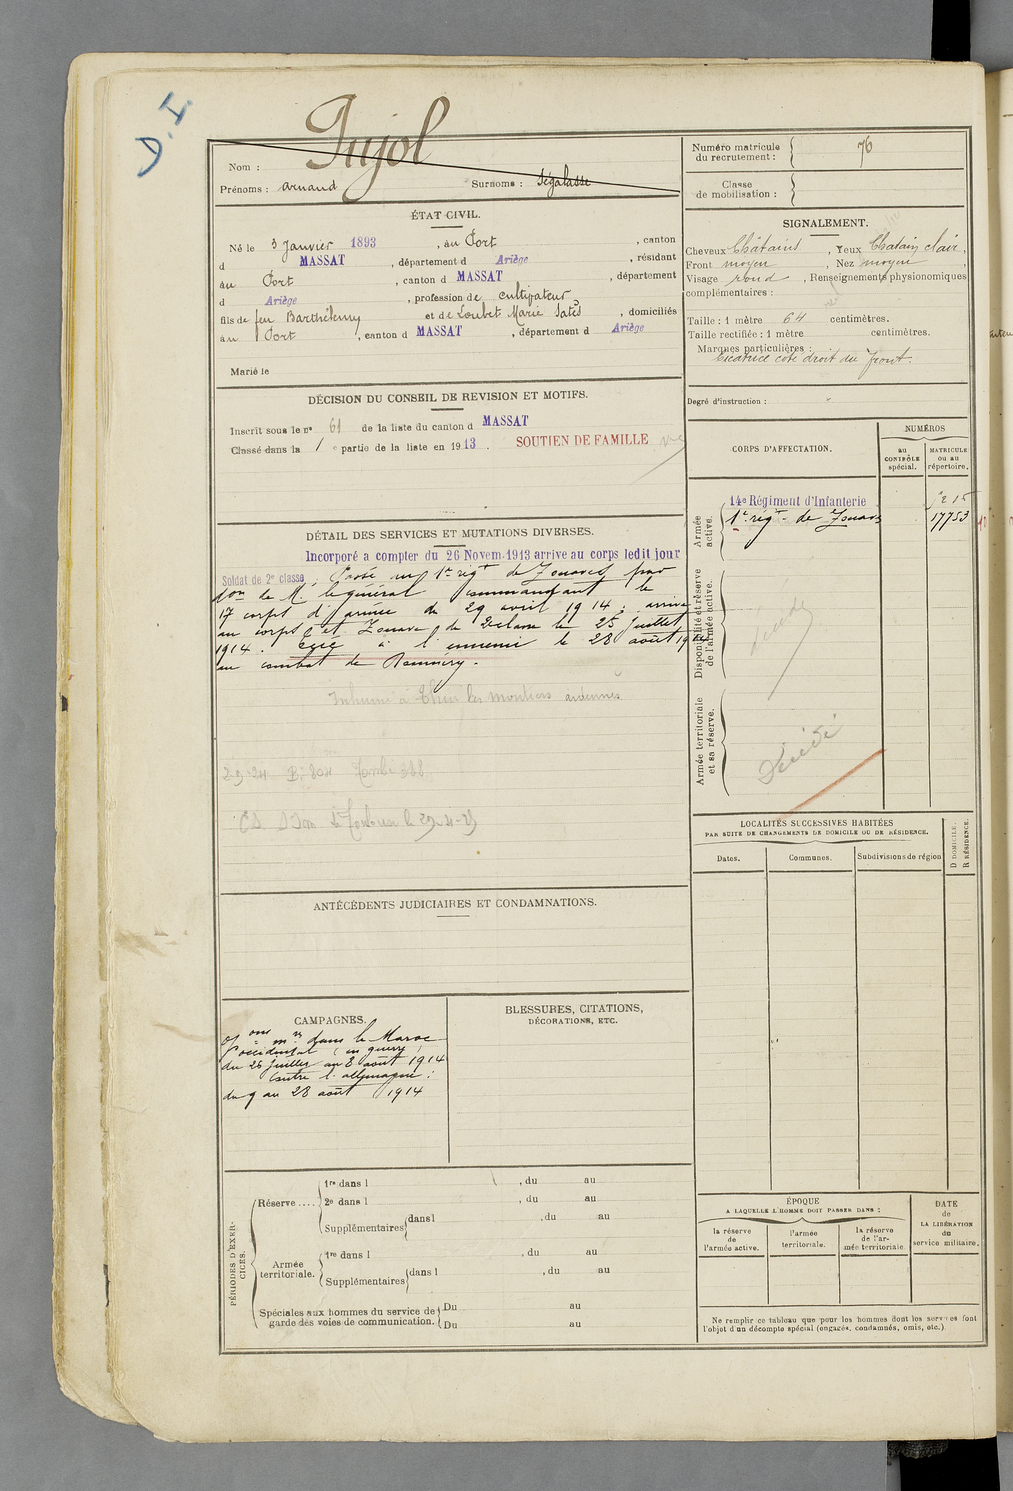 D. I.
Pujol
Nom :
Prénoms : Arnaud Surnoms : Ségalasse
Numéro matricule du recrutement : 76
Classe de mobilisation :
ÉTAT CIVIL.
Né le 3 Janvier 1893, au Port, canton
d MASSAT, département d Ariège, résidant
au Port, canton d MASSAT, département
d Ariège, profession de cultivateur,
fils de feu Barthélemy et de Loubet Marie, domiciliés
au Port, canton d MASSAT, département d Ariège
Marié le
SIGNALEMENT.
Cheveux Châtains, Yeux Chatain clair,
Front moyen, Nez moyen,
Visage rond, Renseignements physionomiques
complémentaires :
Taille : 1 mètre 64 centimètres.
Taille rectifiée : 1 mètre centimètres.
Marques particulières :
Cicatrice coté droit du front.
Degré d'instruction :
DÉCISION DU CONSEIL DE REVISION ET MOTIFS.
Inscrit sous le nº 61 de la liste du canton d MASSAT
Classé dans la 1e partie de la liste en 1913. SOUTIEN DE FAMILLE
DÉTAIL DES SERVICES ET MUTATIONS DIVERSES.
Incorporé a compter du 26 Novem. 1913 arrive au corps ledit jour
Soldat de 2e classe, Passé au 1er régt de Zouaves par
don de M. le général commandant le
17 corps d'armée du 29 avril 1914; arrivé
au corps et Zouave de 2e classe le 25 Juillet
1914. tué à l'ennemi le 28 août 1914
au combat de
Inhumé à Thin les moutiers ardennes
2-9-24 B. 804 Tombe 388
le 29-4-25
CORPS D'AFFECTATION.
NUMÉROS
au CONTRÔLE spécial.
MATRICULE ou au répertoire.
Armée active.
14e Régiment d'Infanterie
1er régt de Zouaves 17753
Disponibilité et réserve de l'armée active.
Armée territoriale et sa réserve.
Décédé
LOCALITÉS SUCCESSIVES HABITÉES
PAR SUITE DE CHANGEMENTS DE DOMICILE OU DE RÉSIDENCE.
Dates. Communes. Subdivisions de région
D DOMICILE. R RÉSIDENCE.
ANTÉCÉDENTS JUDICIAIRES ET CONDAMNATIONS.
CAMPAGNES.
dans le Maroc
occidental (en guerre)
du 25 juillet au 8 août 1914
Contre l'allemagne :
du 9 au 28 août 1914
BLESSURES, CITATIONS,
DÉCORATIONS, ETC.
PÉRIODES D'EXERCICES.
Réserve ....
1re dans l , du au
2e dans l , du au
Supplémentaires dans l , du au
Armée territoriale.
1re dans l , du au
Supplémentaires dans l , du au
Spéciales aux hommes du service de garde des voies de communication.
Du au
Du au
ÉPOQUE
A LAQUELLE L'HOMME DOIT PASSER DANS :
la réserve de l'armée active.
l'armée territoriale.
la réserve de l'armée territoriale
DATE de LA LIBÉRATION du service militaire.
Ne remplir ce tableau que pour les hommes dont les services font
l'objet d'un décompte spécial (engagés, condamnés, omis, etc.)